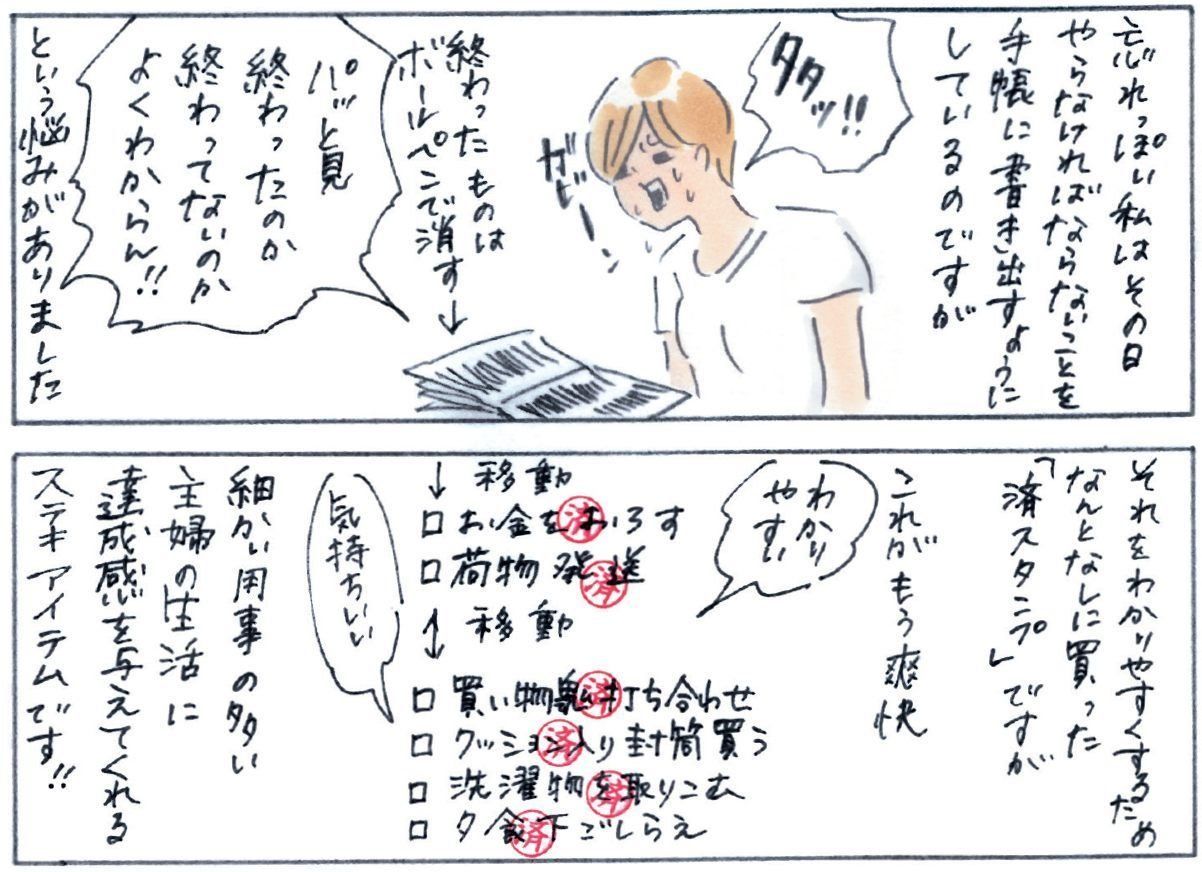 忘れっぽい私はその日
やらなければならないことを
手帳に書き出すように
しているのですが
タタッ!!
ガビーン
終わったものは
ボールペンで消す↓
パッと見
終わったのか
終わってないのか
よくわからん!!
という悩みがありました
それをわかりやすくするため
なんとなしに買った
「済スタンプ」ですが
これがもう爽快
わかり
やすい
↓ 移動
□ お金をおろす
済
□ 荷物発送
済
↕ 移動
□ 買い物 打ち合わせ
済
□ クッション入り封筒買う
済
□ 洗濯物を取りこむ
済
□ 夕飯下ごしらえ
済
気持ちいい
細かい用事の多い
主婦の生活に
達成感を与えてくれる
ステキアイテムです!!